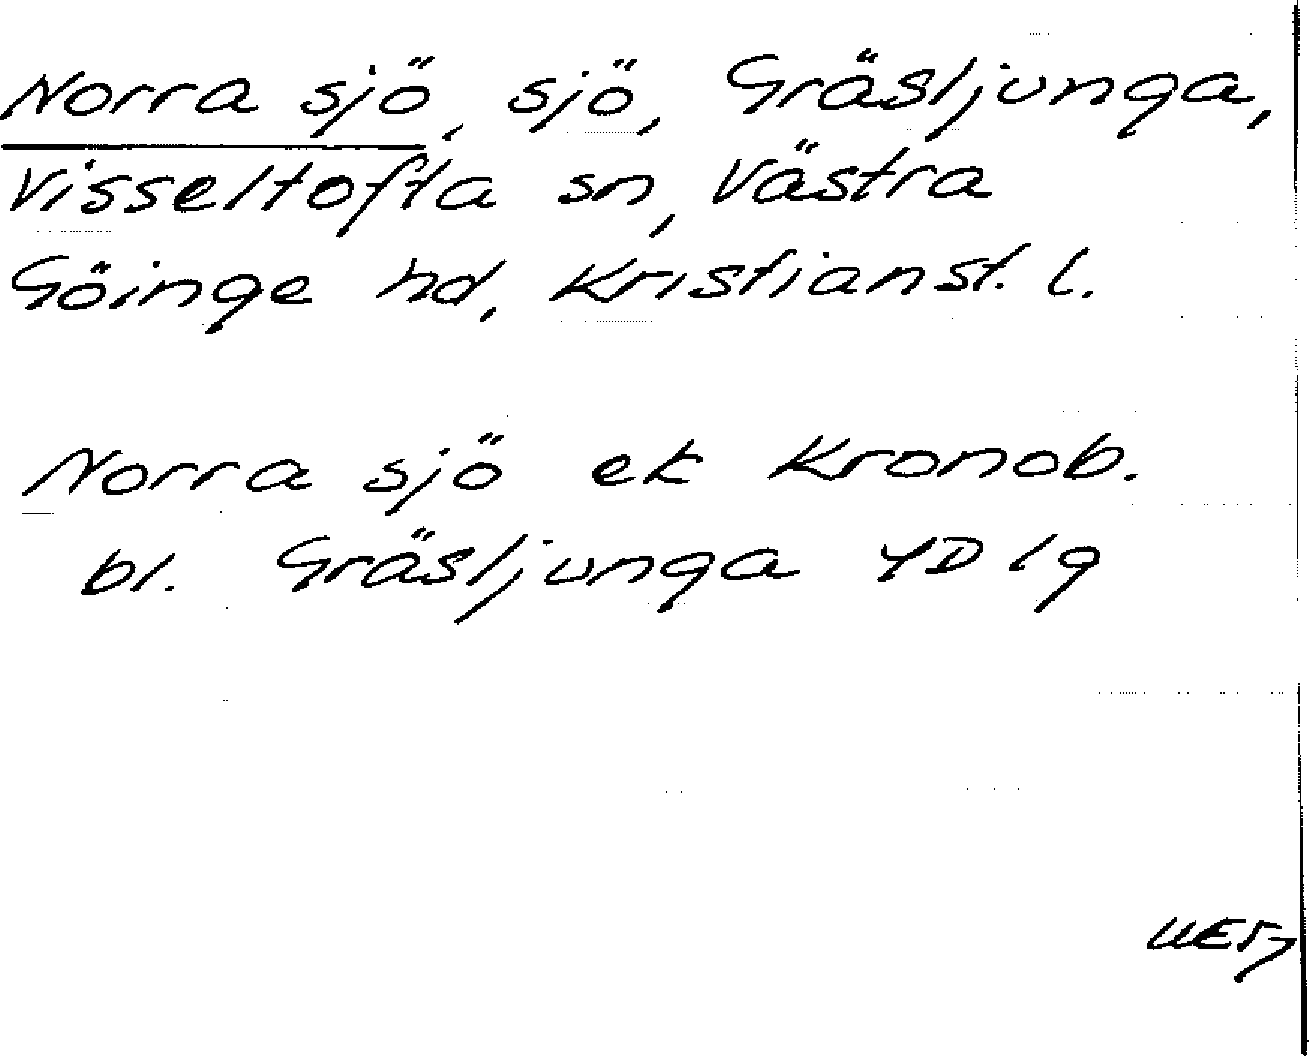 Norra sjö, sjö, Gräsljunga,
Visseltofta sn, Västra
Göinge hd, Kristianst. l.
Norra sjö ek Kronob.
bl. Gräsljunga 4D 1g